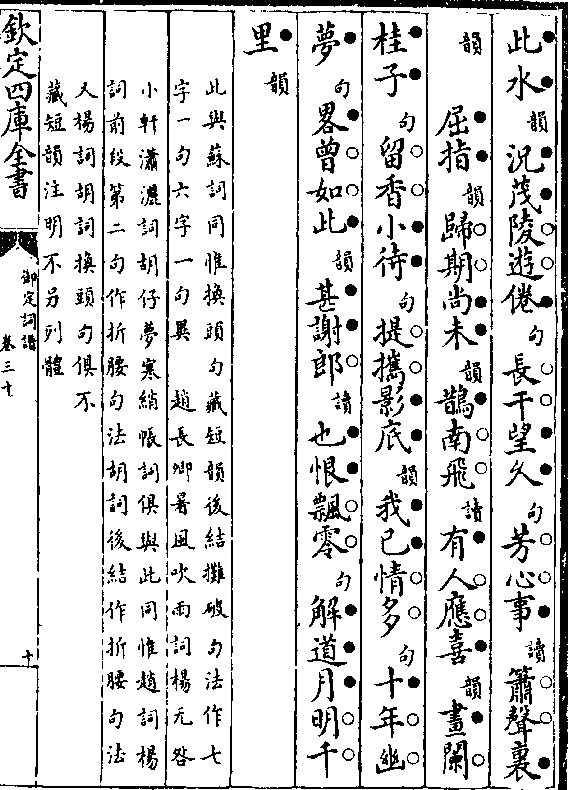 此水韻況茂陵遊倦句長干望久句芳心事讀簫聲裏
韻屈指韻歸期尚未韻鵲南飛讀有人應喜韻畫闌
桂子句留香小待句提攜影底韻我已情多句十年幽
夢句畧曾如此韻甚謝郎讀也恨飄零句解道月明千
里韻
此與蘇詞同惟換頭句藏短韻後結攤破句法作七
字一句六字一句異 趙長卿暑風吹雨詞楊无咎
小軒瀟灑詞胡仔夢寒綃帳詞俱與此同惟趙詞楊
詞前段第二句作折腰句法胡詞後結作折腰句法
又楊詞胡詞換頭句俱不
藏短韻注明不另列體
欽定四庫全書
御定詞譜
卷三十
十